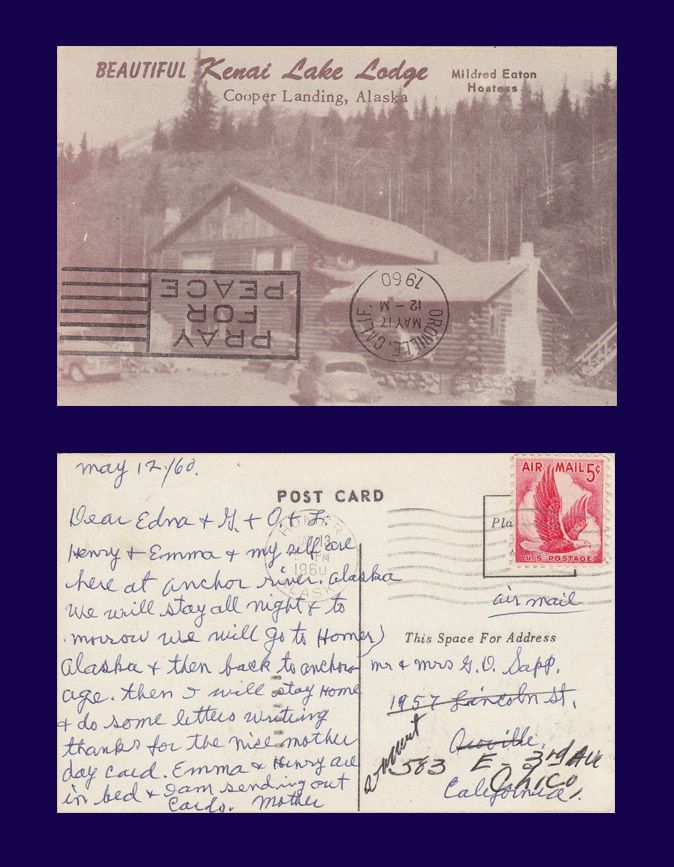 BEAUTIFUL Kenai Lake Lodge
Cooper Landing, Alaska
Mildred Eaton
Hostess
PRAY
FOR
PEACE
OROVILLE, CALIF.
MAY 17
12 - M
1960
may 12/60.
POST CARD
AIR MAIL 5¢
U.S. POSTAGE
Pla
HOMER
13
PM
1960
ALASKA
Dear Edna + G. + O. +
Henry + Emma + my self are
here at anchor river. alaska
We will stay all night + to
morrow we will go to Homer
alaska + then back to anchor
age. then I will stay Home
+ do some letters writing
thanks for the nice mother
day card. Emma + Henry are
in bed + I am sending out
Cards. Mother
air mail
This Space For Address
mr + mrs G. O. Sapp.
1957 Lincoln st,
Oroville,
583 E - 3rd Ave
Chico
California.